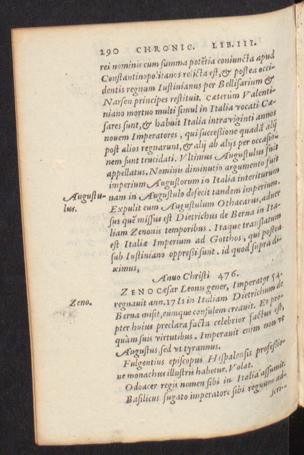 290 CHRONIC. LIB. III.
rei nominis cum summa potẽtia coniuncta apud
Constantinopolitanos relicta est, & postea occi-
dentis regnum Iustinianus per Bellisarium &
Narsen principes restituit. Cæterùm Valenti-
niano mortuo multi simul in Italia vocati Cæ-
sares sunt, & habuit Italia intra viginti annos
nouem Imperatores, qui successione quadã alij
post alios regnarunt, & alij ab alijs per occasio-
nem sunt trucidati. Vltimus Augustulus fuit
appellatus. Nominis diminutio argumento fuit
imperium Augustorum in Italia interiturum
Augustu-
lus.
nam in Augustulo defecit tandem imperium.
Expulit eum Augustulum Othacarus, aduer
sus quẽ missus est Dietrichus de Berna in Ita-
liam Zenonis temporibus. Itaque translatum
est Italiæ Imperium ad Gotthos, qui postea
sub Iustiniano oppressi sunt. id quod suprà di-
ximus.
Anno Christi 476.
Zeno.
ZENO Cæsar Leonis gener, Imperator 54.
regnauit ann. 17 Is in Italiam Dietrichum de
Berna misit, eumque consulem creauit. Et pro-
pter huius preclara facta celebrior factus est,
quàm suis virtutibus. Imperauit enim non vt
Augustus sed vt tyrannus.
Fulgentius episcopus Hispalensis professio-
ne monachus illustris habetur. Volat.
Odoacer regis nomen sibi in Italia assumit.
Basilicus fugato imperatore sibi regnum ad-
scri-